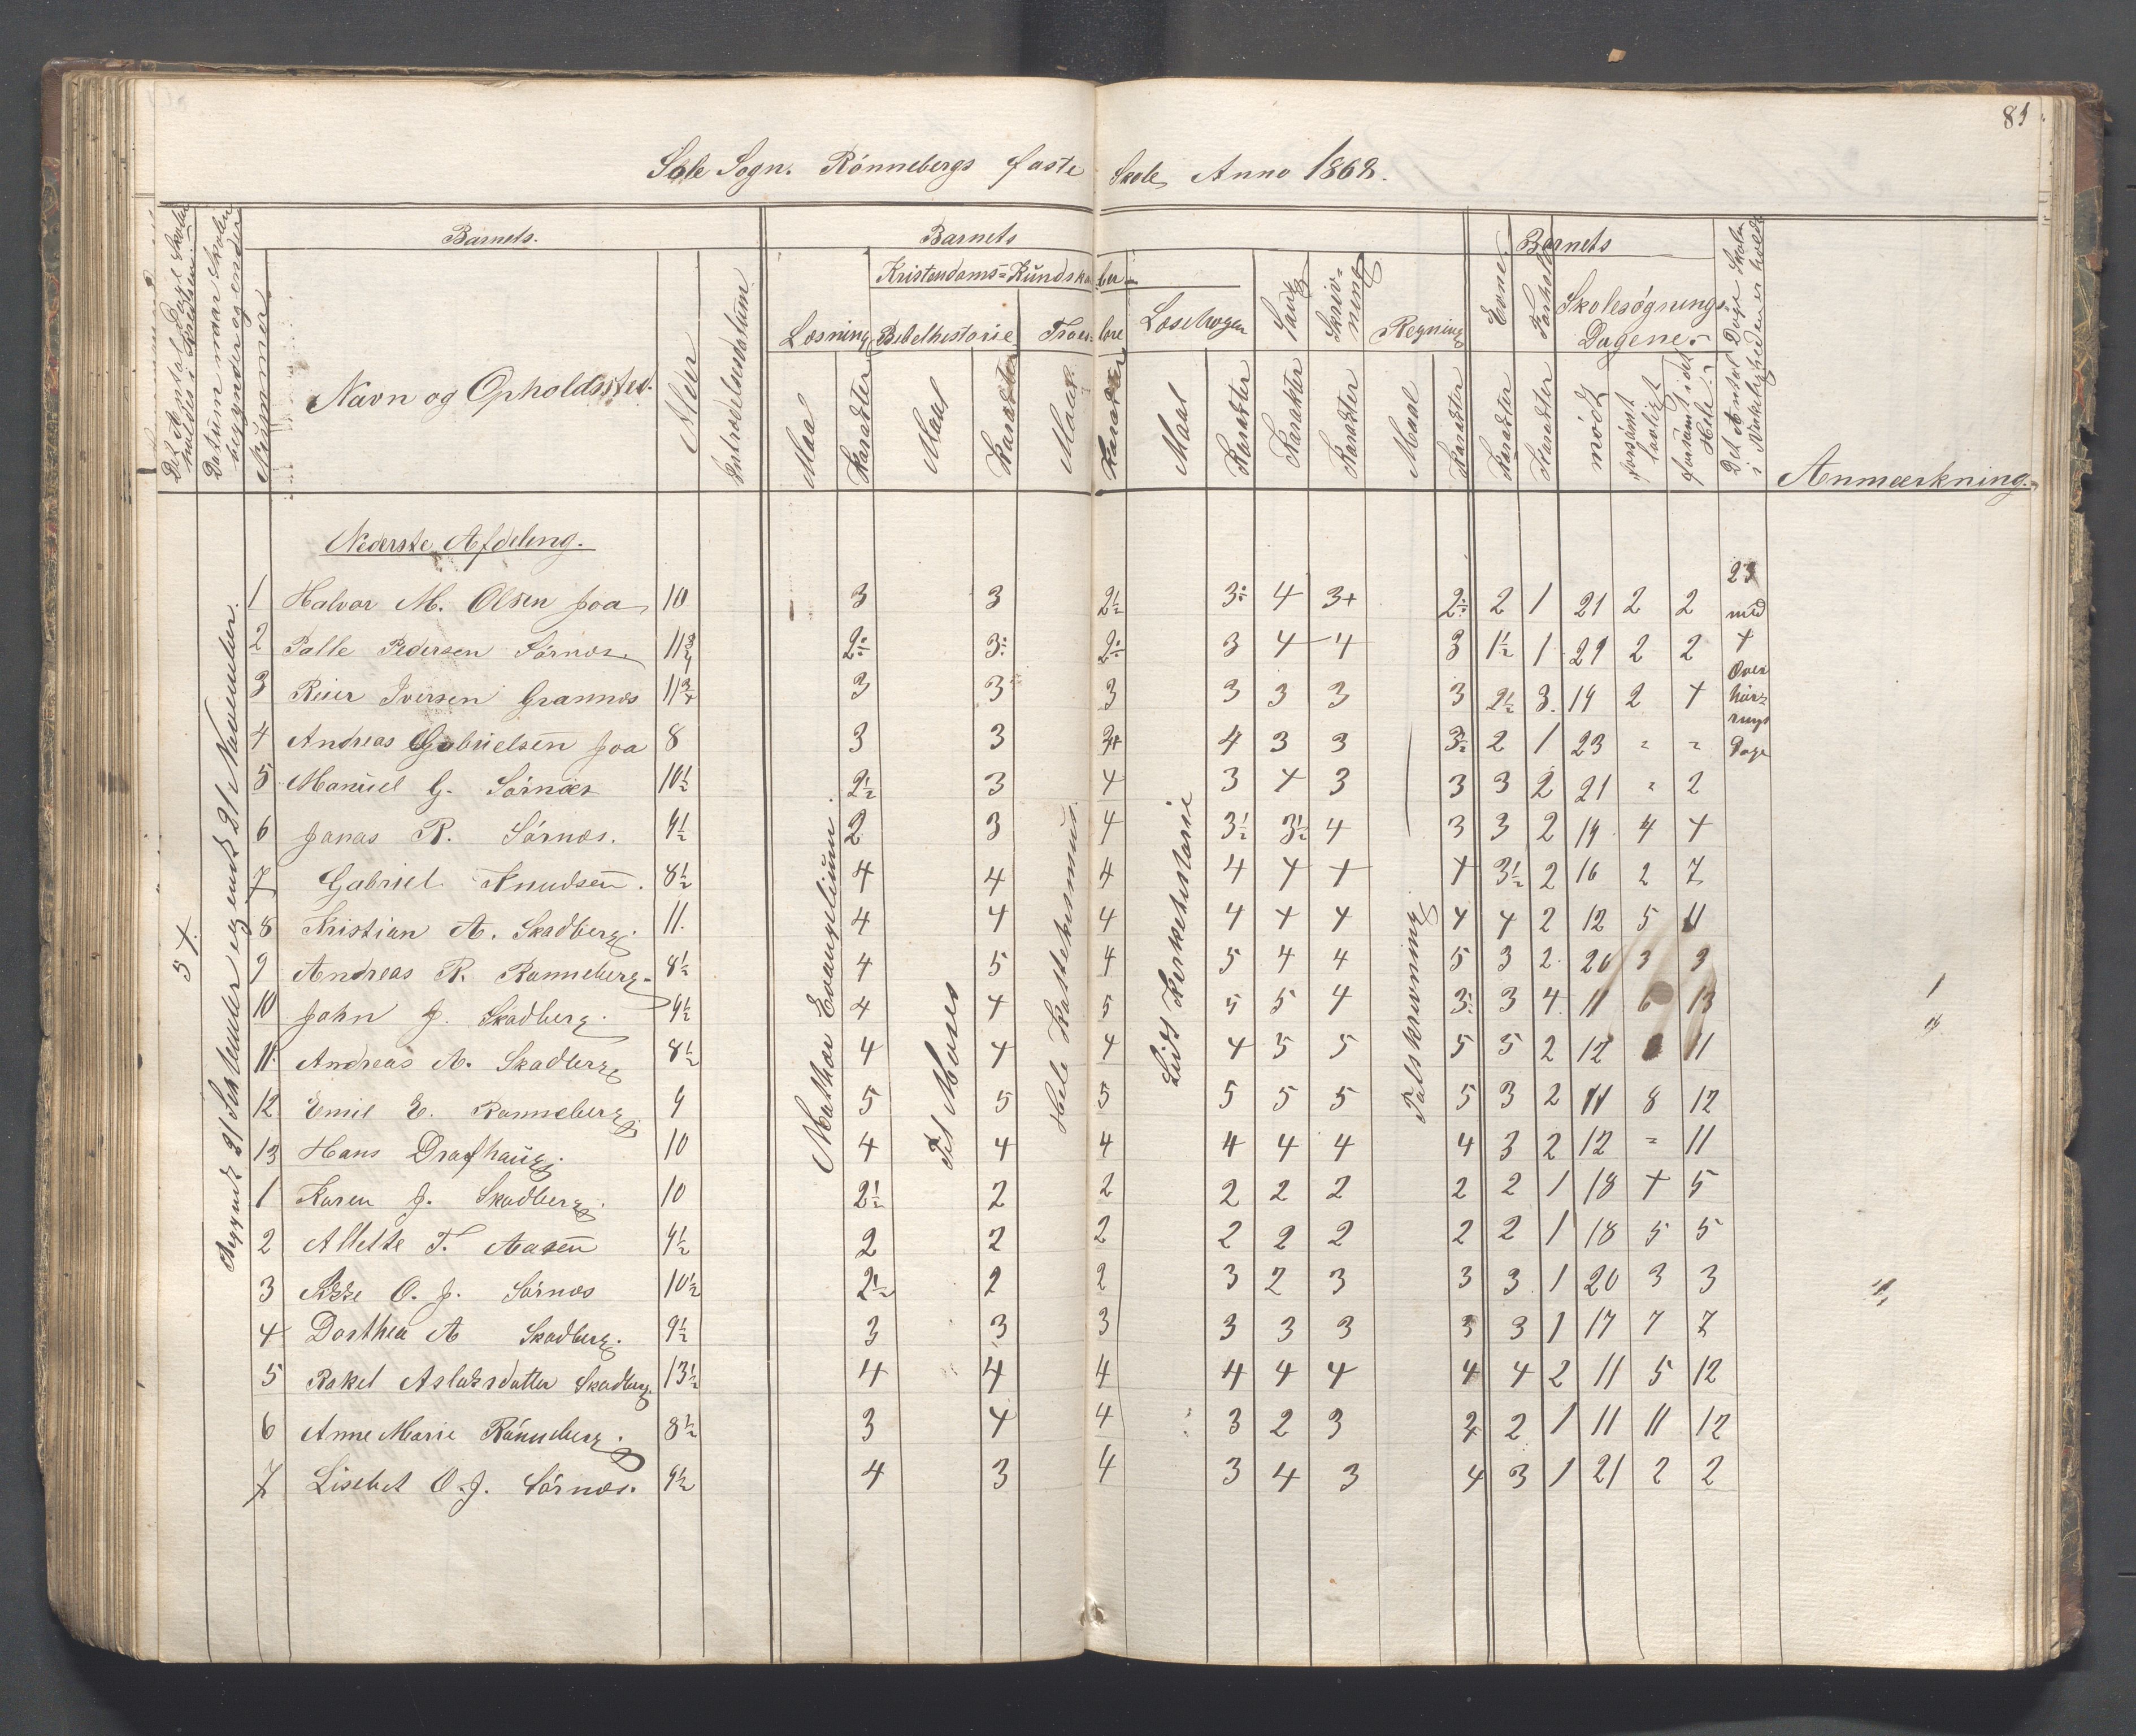 81
Sole Sogn. Rønnebergs faste Skole Anno 1868.
Det Antal Dage Skolen holdes i Kredsen.
Datum naar Skolen begynder og ender
Nummer
Barnets.
Navn og Opholdssted.
Alder
Introdelsesdatum
Barnets
Læsning
Maal
Karakter
Kristendoms-Kundskaber
Bibelhistorie
Maal
Karakter
Troeslære
Maal
Karakter
Læsebogen
Maal
Karakter
Sang
Karakter
Skrivning
Karakter
Regning
Maal
Karakter
Barnets
Evne
Karakter
Forhold
Karakter
Skolesøgnings-Dagene.
mødt
forsømt lovligt
forsømt i det Hele.
Det Antal Dage Skolen i Virkeligheden er holdt
Anmærkning.
Nederste Afdeling.
54.
Begyndt 21 September og endt 21de November.
Mathæi Evangelium.
Til Moses
Hele Katekismus.
Lids Kirkehistorie
Talskrivning
23 med + Overhørings Dage
1 Halvor M. Olsen Joa 10 3 3 2½ 3÷ 4 3+ 2÷ 2 1 21 2 2
2 Palle Pedersen Sørnæs. 11¾ 2÷ 3÷ 2÷ 3 4 4 3 1½ 1 21 2 2
3 Reier Iversen Grannæs 11¾ 3 3 3 3 3 3 3 2½ 3. 19 2 4
4 Andreas Gabrielsen Joa 8 3 3 3+ 4 3 3 3÷ 2 1 23 " "
5 Manuel G. Sørnæs 10½ 2½ 3 4 3 4 3 3 3 2 21 " 2
6 Jonas R. Sørnæs. 9½ 2 3 4 3½ 3½ 4 3 3 2 19 4 4
7 Gabriel Knudsen. 8½ 4 4 4 4 4 4 4 3½ 2 16 2 7
8 Kristian A. Skadberg. 11. 4 4 4 4 4 4 4 4 2 12 5 11
9 Andreas R. Rønneberg. 8½ 4 5 4 5 4 4 5 3 2. 20 3 3
10 John J. Skadberg. 9½ 4 4 5 5 5 4 3÷ 3 4. 11 6 13
11. Andreas A. Skadberg 8½ 4 4 4 4 5 5 5 5 2 12 11
12. Emil E. Rønneberg 9 5 5 5 5 5 5 5 3 2 11 8 12
13 Hans Drafhaug. 10 4 4 4 4 4 4 4 3 2 12 " 11
1 Karen J. Skadberg. 10 2½ 2 2 2 2 2 2 2 1 18 4 5
2 Allette T. Aasen 9½ 2 2 2 2 2 2 2 2 1 18 5 5
3 O. J. Sørnæs 10½ 2½ 2 2 3 2 3 3 3 1 20 3 3
4 Dorthea A Skadberg. 9½ 3 3 3 3 3 3 3 3 1 17 7 7
5 Rakel Aslaksdatter Skadberg. 13½ 4 4 4 4 4 4 4 4 2 11 5 12
6 Anne Marie Rønneberg. 8½ 3 4 4 3 2 3 2 1 11 11 12
7 Lisebet O. J. Sørnæs. 9½ 4 3 4 3 4 3 4 3 1 21 2 2